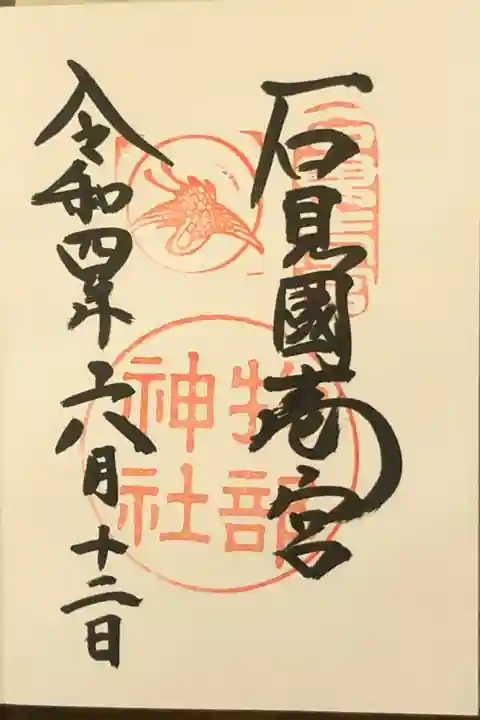 石見國壱宮
物部
神社
令和四年六月十二日